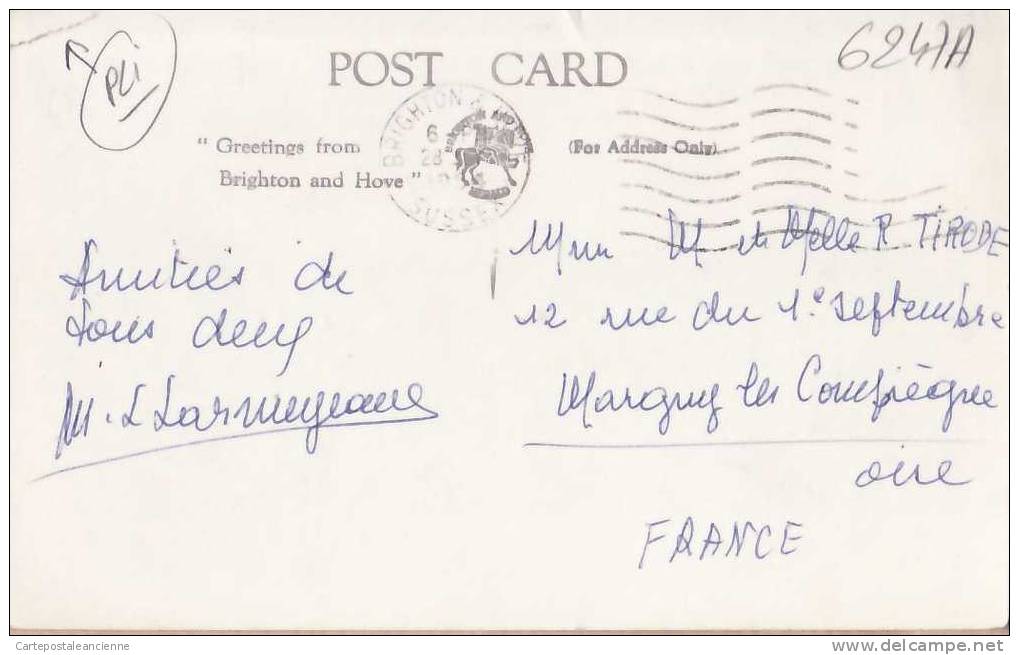 PLi
6247A
POST CARD
BRIGHTON & HOVE
6
28
SUSSEX
" Greetings from
Brighton and Hove "
(For Address Only)
Amitiés de
tous deux
Mme M et Melle R TIRODE
12 rue du 1e septembre
Margny les Compiègne
oise
FRANCE
Cartepostaleancienne
www.delcampe.net